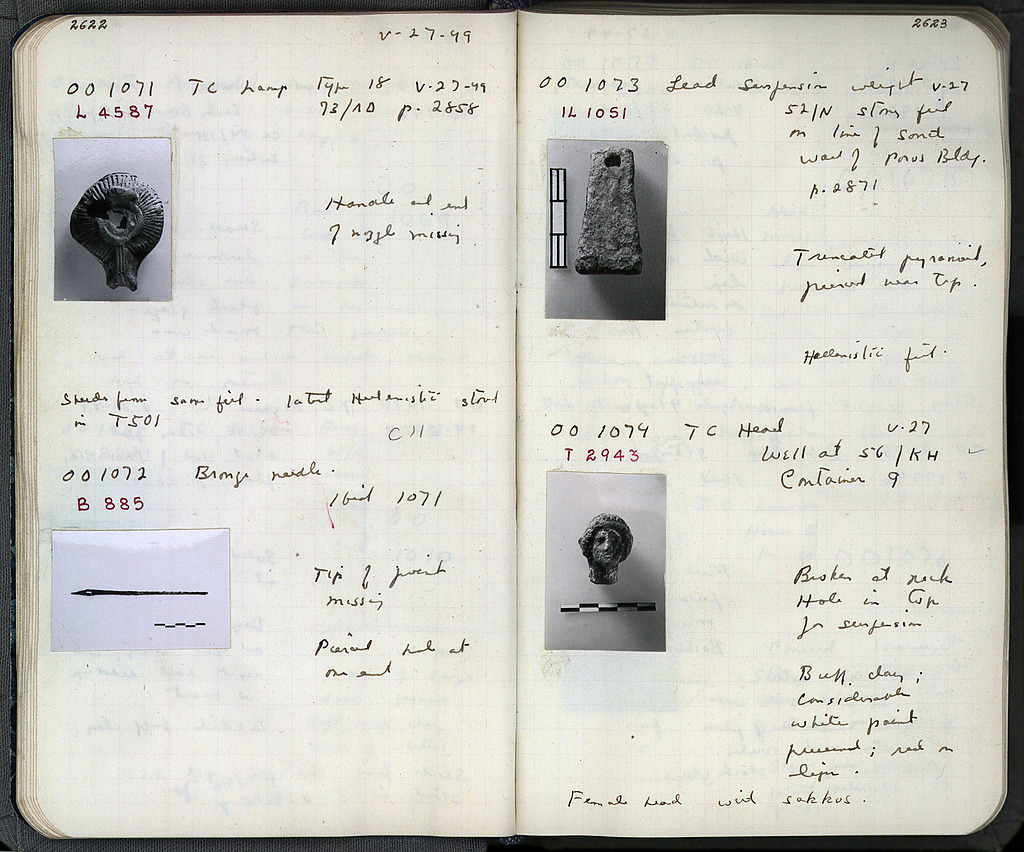 2622
V-27-49
OO 1071 TC Lamp Type 18 V-27-49
L 4587 73/ΛΔ p. 2858
Handle and end
of nozzle missing
Sherds from same fill. Latest Hellenistic stored
in T501
C 11
OO 1072 Bronze needle.
B 885 Ibid 1071
Tip of point
missing
Pierced hole at
one end
2623
OO 1073 Lead suspension weight V-27
IL 1051 52/N stony fill
on line of south
wall of Poros Bldg.
p. 2871
Truncated pyramid,
pierced near top.
Hellenistic fill.
OO 1074 TC Head V-27
T 2943 Well at 56/ΚΗ
Container 9
Broken at neck
Hole in top
for suspension
Buff clay;
considerable
white paint
preserved; red on
lips.
Female head with sakkos.